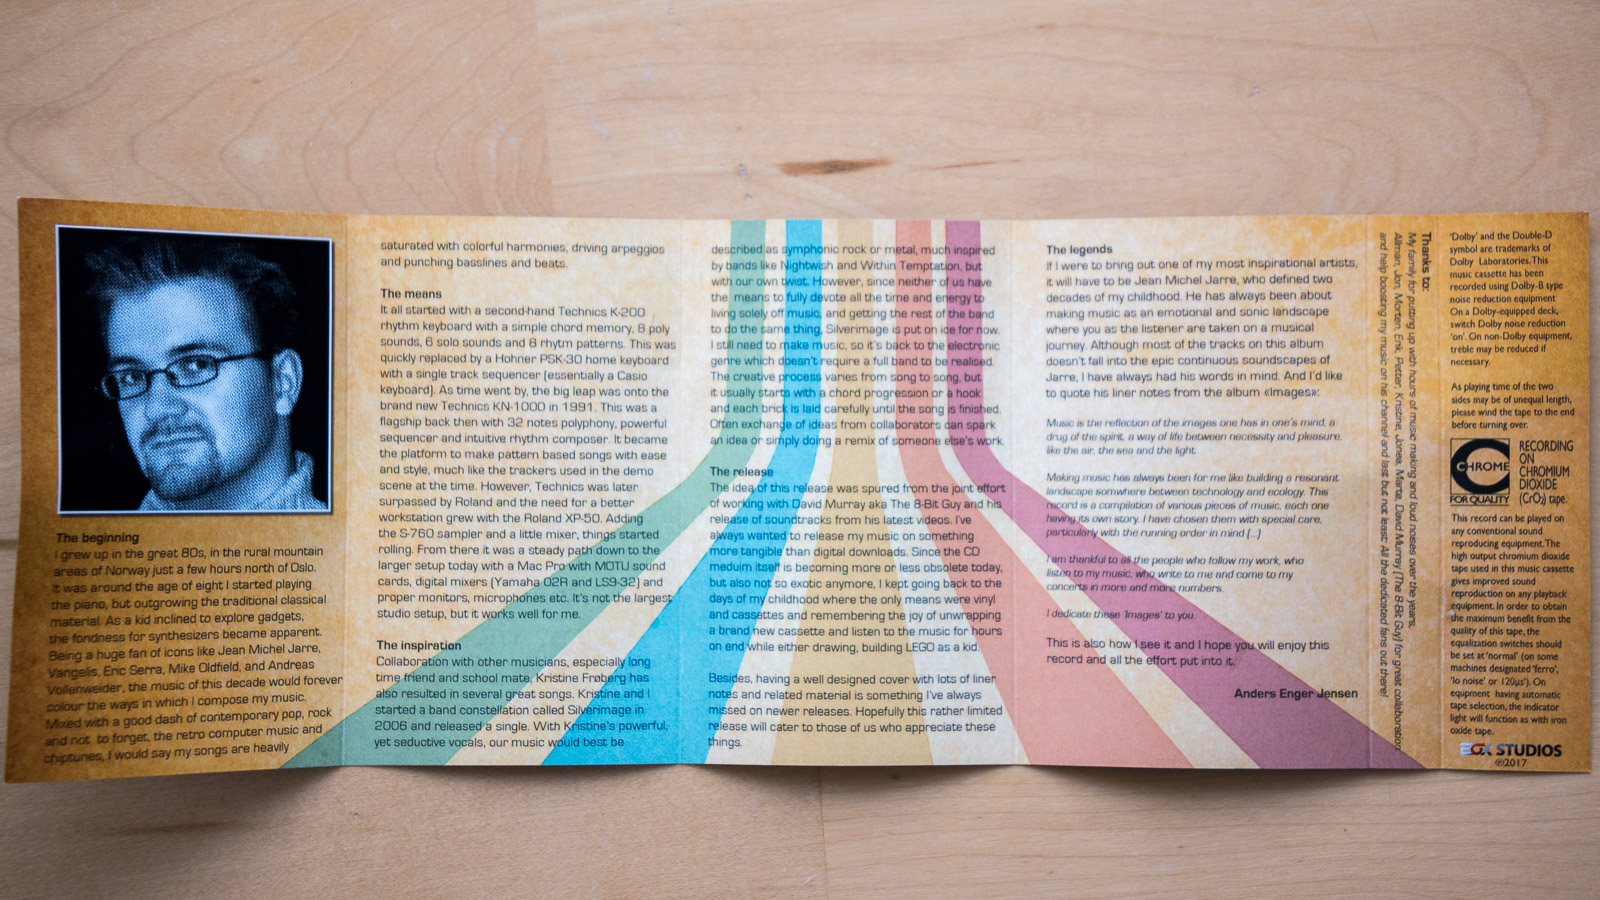 The beginning
I grew up in the great 80s, in the rural mountain
areas of Norway just a few hours north of Oslo.
It was around the age of eight I started playing
the piano, but outgrowing the traditional classical
material. As a kid inclined to explore gadgets,
the fondness for synthesizers became apparent.
Being a huge fan of icons like Jean Michel Jarre,
Vangelis, Eric Serra, Mike Oldfield, and Andreas
Vollenweider, the music of this decade would forever
colour the ways in which I compose my music.
Mixed with a good dash of contemporary pop, rock
and not  to forget, the retro computer music and
chiptunes, I would say my songs are heavily
saturated with colorful harmonies, driving arpeggios
and punching basslines and beats.
The means
It all started with a second-hand Technics K-200
rhythm keyboard with a simple chord memory, 8 poly
sounds, 6 solo sounds and 8 rhytm patterns. This was
quickly replaced by a Hohner PSK-30 home keyboard
with a single track sequencer (essentially a Casio
keyboard). As time went by, the big leap was onto the
brand new Technics KN-1000 in 1991. This was a
flagship back then with 32 notes polyphony, powerful
sequencer and intuitive rhythm composer. It became
the platform to make pattern based songs with ease
and style, much like the trackers used in the demo
scene at the time. However, Technics was later
surpassed by Roland and the need for a better
workstation grew with the Roland XP-50. Adding
the S-760 sampler and a little mixer, things started
rolling. From there it was a steady path down to the
larger setup today with a Mac Pro with MOTU sound
cards, digital mixers (Yamaha 02R and LS9-32) and
proper monitors, microphones etc. It's not the largest
studio setup, but it works well for me.
The inspiration
Collaboration with other musicians, especially long
time friend and school mate, Kristine Frøberg has
also resulted in several great songs. Kristine and I
started a band constellation called Silverimage in
2006 and released a single. With Kristine's powerful,
yet seductive vocals, our music would best be
described as symphonic rock or metal, much inspired
by bands like Nightwish and Within Temptation, but
with our own twist. However, since neither of us have
the  means to fully devote all the time and energy to
living solely off music, and getting the rest of the band
to do the same thing, Silverimage is put on ice for now.
I still need to make music, so it's back to the electronic
genre which doesn't require a full band to be realised.
The creative process varies from song to song, but
it usually starts with a chord progression or a hook
and each brick is laid carefully until the song is finished.
Often exchange of ideas from collaborators can spark
an idea or simply doing a remix of someone else's work.
The release
The idea of this release was spured from the joint effort
of working with David Murray aka The 8-Bit Guy and his
release of soundtracks from his latest videos. I've
always wanted to release my music on something
more tangible than digital downloads. Since the CD
meduim itself is becoming more or less obsolete today,
but also not so exotic anymore, I kept going back to the
days of my childhood where the only means were vinyl
and cassettes and remembering the joy of unwrapping
a brand new cassette and listen to the music for hours
on end while either drawing, building LEGO as a kid.
Besides, having a well designed cover with lots of liner
notes and related material is something I've always
missed on newer releases. Hopefully this rather limited
release will cater to those of us who appreciate these
things.
The legends
If I were to bring out one of my most inspirational artists,
it will have to be Jean Michel Jarre, who defined two
decades of my childhood. He has always been about
making music as an emotional and sonic landscape
where you as the listener are taken on a musical
journey. Although most of the tracks on this album
doesn't fall into the epic continuous soundscapes of
Jarre, I have always had his words in mind. And I'd like
to quote his liner notes from the album «Images»:
Music is the reflection of the images one has in one's mind, a
drug of the spirit, a way of life between necessity and pleasure,
like the air, the sea and the light.
Making music has always been for me like building a resonant
landscape somwhere between technology and ecology. This
record is a compilation of various pieces of music, each one
having its own story. I have chosen them with special care,
particularly with the running order in mind (...)
I am thankful to all the people who follow my work, who
listen to my music, who write to me and come to my
concerts in more and more numbers.
I dedicate these 'Images' to you.
This is also how I see it and I hope you will enjoy this
record and all the effort put into it.
Anders Enger Jensen
Thanks to:
My family for putting up with hours of music making and loud noises over the years,
Allman, Jon, Morten, Erik, Petter, Kristine, Jonea, Marta, David Murray (The 8-Bit Guy) for great collaboration
and help boosting my music on his channel and last but not least: All the dedicated fans out there!
'Dolby' and the Double-D
symbol are trademarks of
Dolby Laboratories. This
music cassette has been
recorded using Dolby-B type
noise reduction equipment
On a Dolby-equipped deck,
switch Dolby noise reduction
'on'. On non-Dolby equipment,
treble may be reduced if
necessary.
As playing time of the two
sides may be of unequal length,
please wind the tape to the end
before turning over.
CHROME
FOR QUALITY
RECORDING
ON
CHROMIUM
DIOXIDE
(CrO₂) tape.
This record can be played on
any conventional sound
reproducing equipment. The
high output chromium dioxide
tape used in this music cassette
gives improved sound
reproduction on any playback
equipment. In order to obtain
the maximum benefit from the
quality of this tape, the
equalization switches should
be set at 'normal' (on some
machines designated 'ferro',
'lo noise' or 120µs'). On
equpment  having automatic
tape selection, the indicator
light will function as with iron
oxide tape.
EOX STUDIOS
℗2017